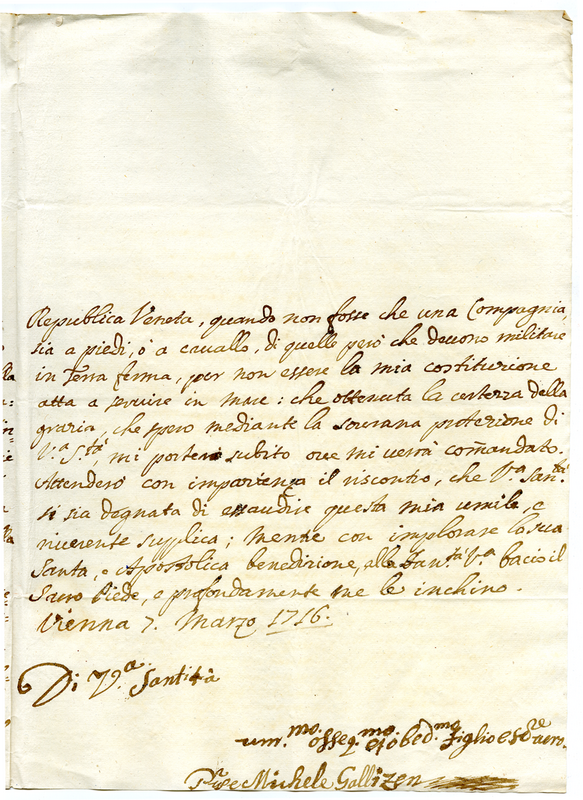 Republica Veneta, quando non fosse che una Compagnia,
sia a piedi, ò a cavallo, di quelle però che devono militare
in terra ferma, per non essere la mia costituzione
atta a servire in mare: che ottenuta la certezza della
grazia, che spero mediante la sovrana protezione di
V.ª S.tà, mi porterò subito ove mi verrà com̃andato.
Attenderò con impazienza il riscontro, che V.ª San.tà
si sia degnata di essaudire questa mia umile, e
riverente supplica; mentre con implorare la sua
Santa, e Apostolica benedizione, alla San.tà V.ª bacio il
Sacro Piede, e profondamente me le inchino.
Vienna 7. Marzo 1716.
Di V.ª Santità
um.mo osseq.mo ed obed.mo figlio e
Michele Gallizen